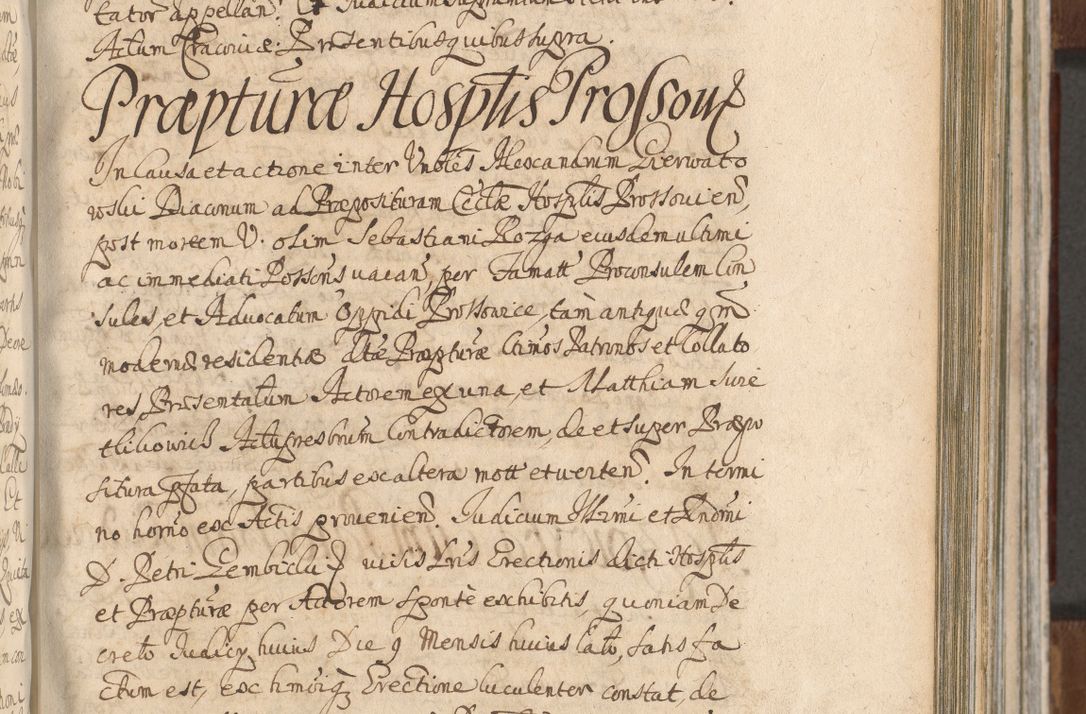 tator appellan̄.
Actum Cracoviæ. Præsentibus quibus supra.
Præpturæ Hosptlis Prossov
In Causa et actione inter Vnbles Alexandrum Gierwato
wski Diaconum ad Præposituram Eccłæ Hosptlis Prossovien̄,
post mortem V. olim Sebastiani Rozga eiusdem ultimi
ac immediati Possoris vacan̄, per Famatt Proconsulem Con
sules, et Advocatum Oppidi Prossovice, tam antiquæ qm̄
modernæ residentiæ dtæ Præpturæ ltimos Patronos et Collato
res Præsentatum Actorem ex una, et Matthiam
Actu presbrum Contradictorem, de et super Præpo
situra pfata, partibus ex altera mott et verten̄. In termi
no horno ex Actis provenien̄. Judicium Illmi et Rndmi
D. Petri Gembicki visis Lris Erectionis dicti Hosptlis
et Præpturæ per Actorem sponte exhibitis, quoniam De
creto Judicy huius Die 9 Mensis huius lato, satis fa
ctum est, ex hmoiq Erectione luculenter constat, de